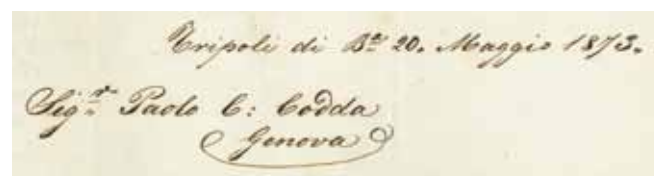 Tripoli di B.ª 20. Maggio 1873.
Sig.r Paolo C: Codda
Genova